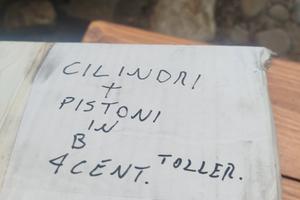 CILINDRI
+
PISTONI
IN
B
4 CENT. TOLLER.